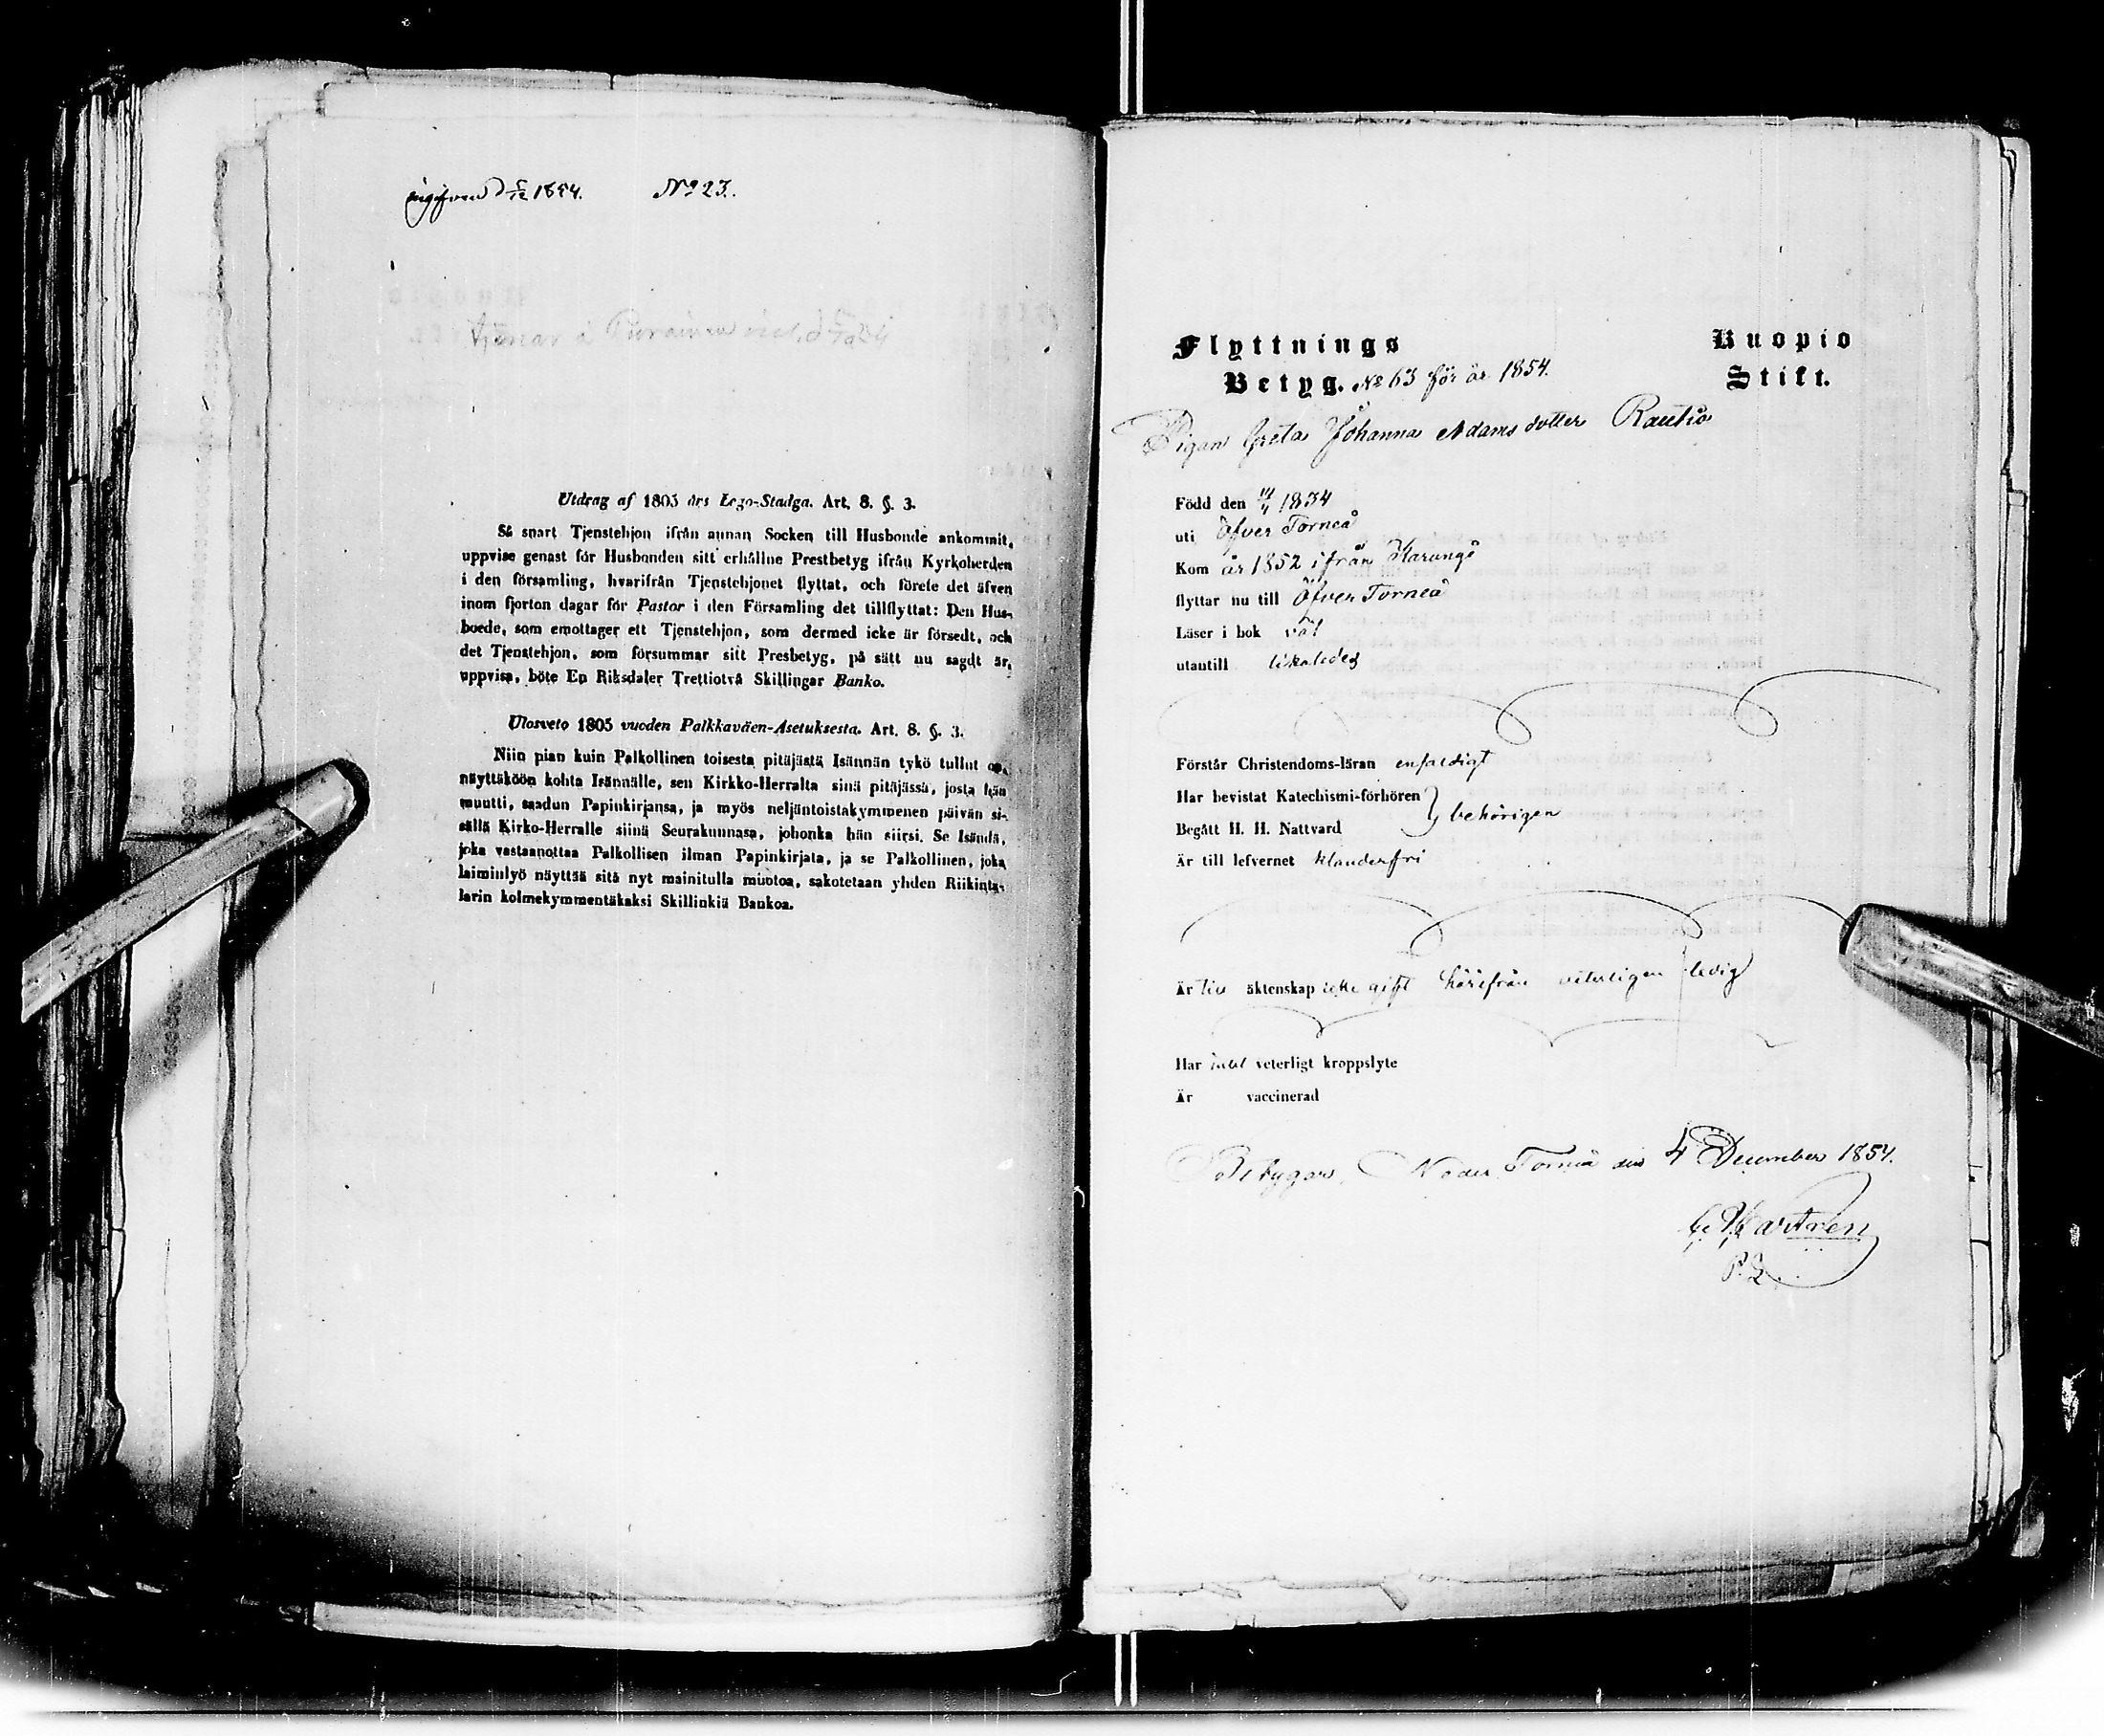 ingifven d 5/12 1854. No 23.
tjenar å Purainen
Utdrag af 1805 års Lego-Stadga. Art. 8. §. 3.
Så snart Tjenstehjon ifrån annan Socken till Husbonde ankommit,
uppvise genast för Husbonden sitt erhållne Prestbetyg ifrån Kyrkoherden
i den församling, hvarifrån Tjenstehjonet flyttat, och förete det äfven
inom fjorton dagar för Pastor i den Församling det tillflyttat: Den Hus-
boede, som emottager ett Tjenstehjon, som dermed icke är försedt, och
det Tjenstehjon, som försummar sitt Presbetyg, på sätt nu sagdt är,
uppvisa, böte En Riksdaler Trettiotvå Skillingar Banko.
Ulosveto 1805 vuoden Palkkaväen-Asetuksesta. Art. 8. §. 3.
Niin pian kuin Palkollinen toisesta pitäjästä Isännän tykö tullut on,
näyttäköön kohta Isännälle, sen Kirkko-Herralta sinä pitäjässä, josta hän
muutti, saadun Papinkirjansa, ja myös neljäntoistakymmenen päivän si-
sällä Kirko-Herralle siinä Seurakunnasa, johonka hän siirsi. Se Isändä,
joka vastaanottaa Palkollisen ilman Papinkirjata, ja se Palkollinen, joka
laiminlyö näyttää sitä nyt mainitulla muotoa, sakotetaan yhden Riikinta-
larin kolmekymmentäkaksi Skillinkiä Bankoa.
Flyttnings Kuopio
Betyg. No 63 för år 1854. Stift.
Pigan Greta Johanna Adamsdotter Rautio
Född den 14/11 1834
uti Öfver Torneå
Kom år 1852 ifrån Karungi
flyttar nu till Öfver Torneå
Läser i bok väl
utantill likaledes
Förstår Christendoms-läran enfaldigt
Har bevistat Katechismi-förhören } behörigen
Begått H. H. Nattvard
Är till lefvernet klanderfri
Är till äktenskap icke gift härifrån veterligen ledig
Har intet veterligt kroppslyte
Är vaccinerad
Betygar, Neder Torneå den 4 December 1854.